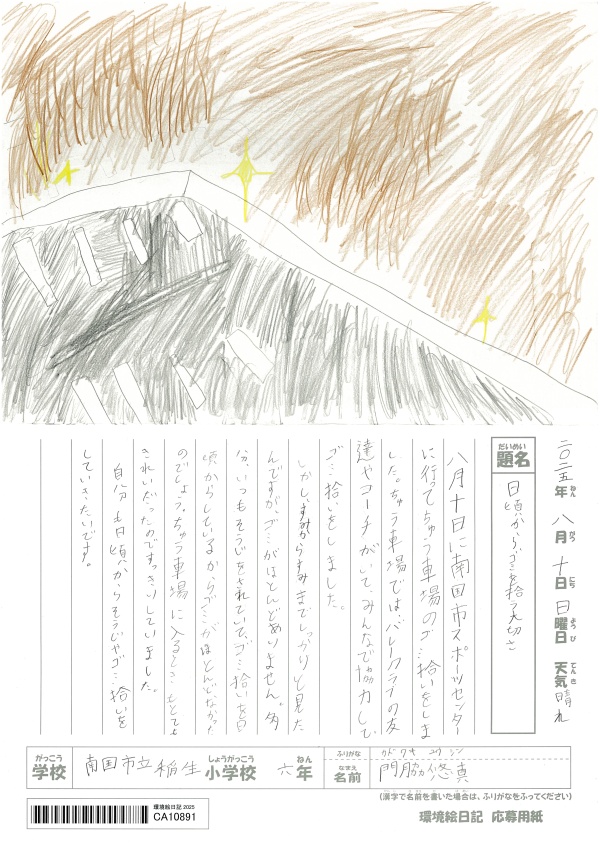 二〇二五年 八月 十日 日曜日 天気 晴れ
ねん がつ にち ようび てんき
だいめい
題名
日頃からゴミを拾う大切さ
八月十日に南国市スポーツセンター
に行ってちゅう車場のゴミ拾いをしま
した。ちゅう車場では、バレークラブの友
達やコーチがいて、みんなで協力して
ゴミ拾いをしました。
しかし、すみからすみまでしっかりと見た
んですが、ゴミがほとんどありません。多
分、いつもそうじをされていて、ゴミ拾いを日
頃からしているからゴミがほとんどなかった
のでしょう。ちゅう車場に入るとき、とても
きれいだったのですっきりしていました。
自分も日頃からそうじやゴミ拾いを
していきたいです。
がっこう しょうがっこう ねん
学校 南国市立稲生小学校 六年
ふりがな カドワキ ユウシン
なまえ
名前 門脇悠真
(漢字で名前を書いた場合は、ふりがなをふってください)
環境絵日記 2025
CA10891
環境絵日記 応募用紙